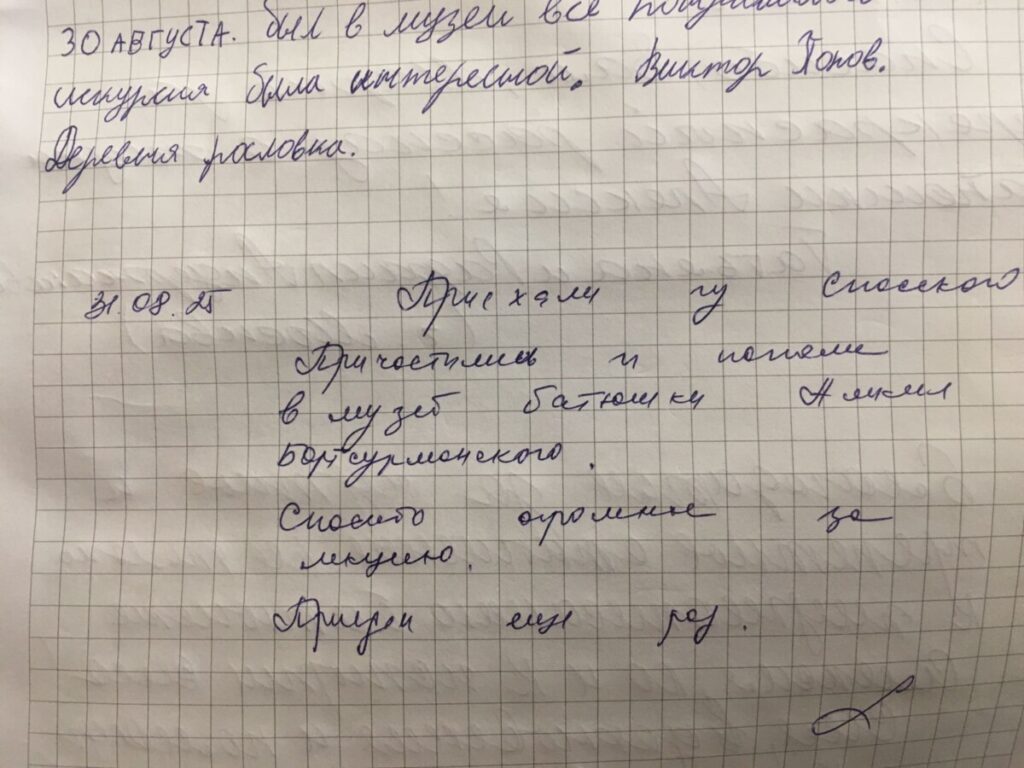 30 АВГУСТА. был в музеи все понравилось
икскурсия была интересной. Виктор Попов.
Деревня рословка.
31.08.25 Приехали из Спасского
Причастились и попали
в музей батюшки Алексия
Бортсурманского.
Спасибо огромное за
лекцию.
Приедем еще раз.